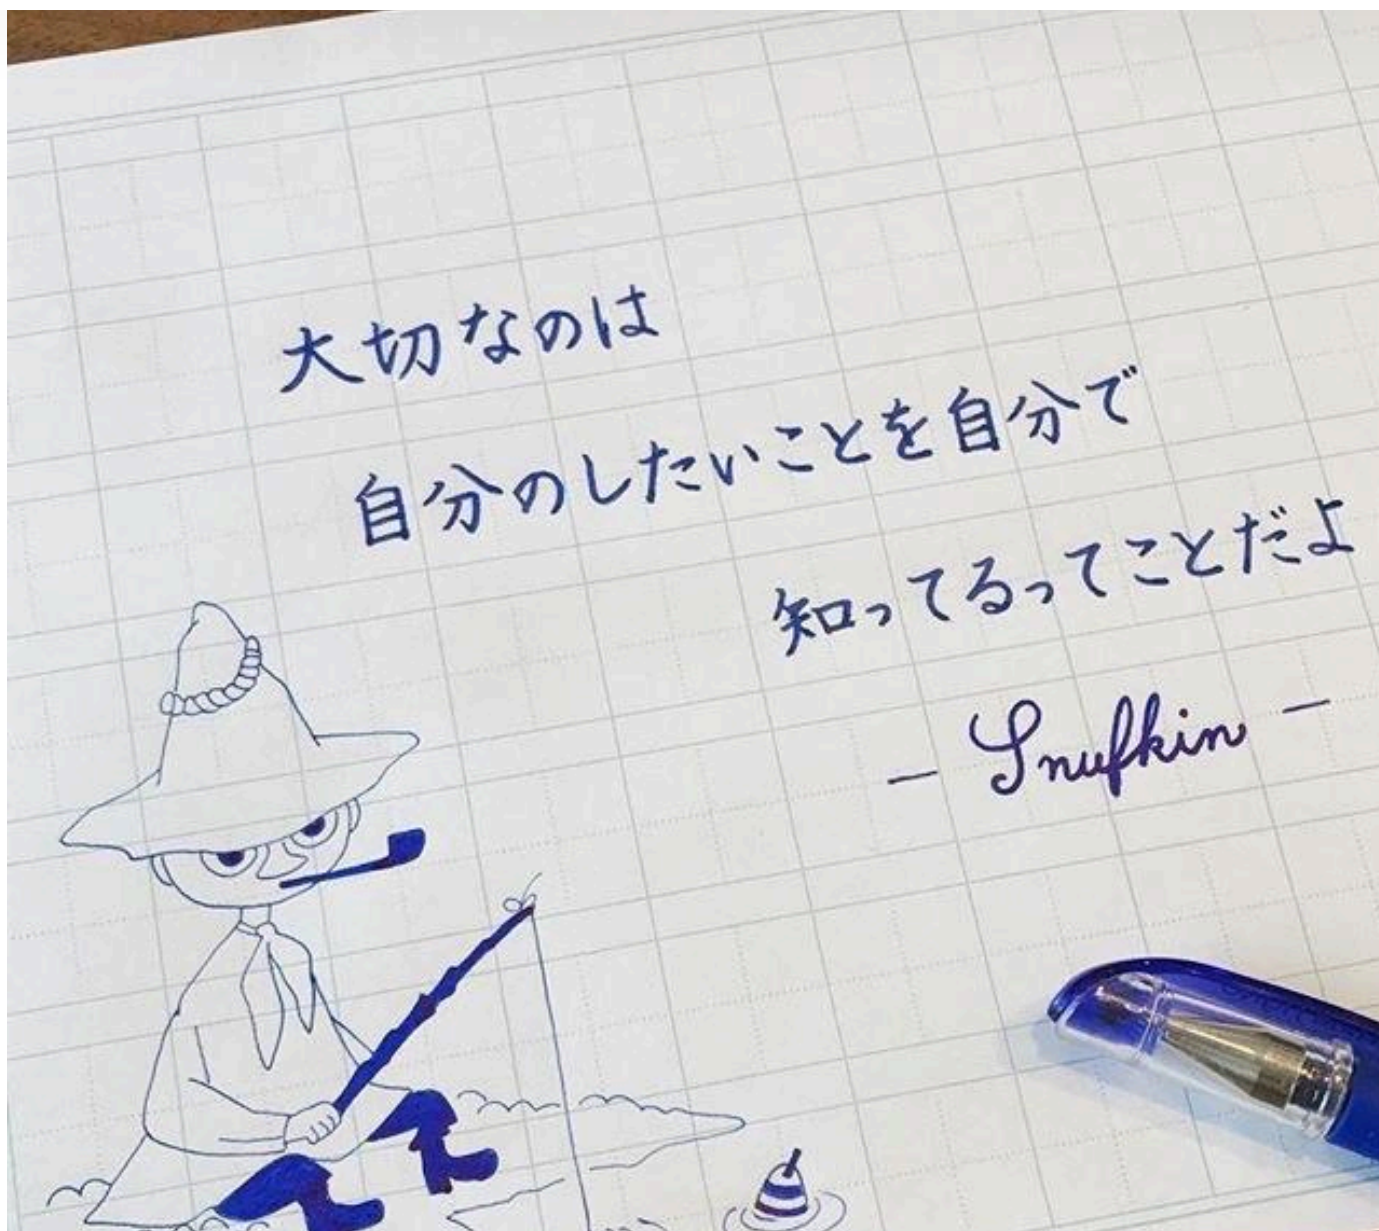 大切なのは
自分のしたいことを自分で
知ってるってことだよ
— Snufkin —